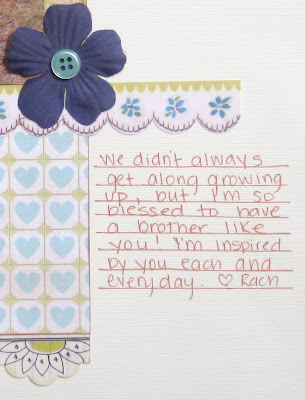 we didn't always
get along growing
up, but I'm so
blessed to have
a brother like
you! I'm inspired
by you each and
everyday. ♡ Rach